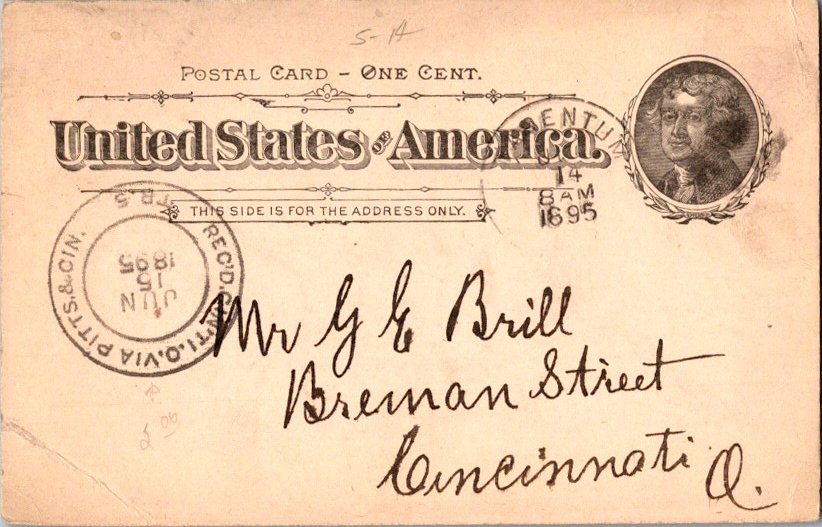 5-14
POSTAL CARD – ONE CENT.
United States OF America.
THIS SIDE IS FOR THE ADDRESS ONLY.
ENTUM
14
8 AM
1895
REC'D. CIN'TI. O. VIA PITTS. & CIN.
TR. 5
JUN
15
1895
Mr G E Brill
Breman Street
Cincinnati O.